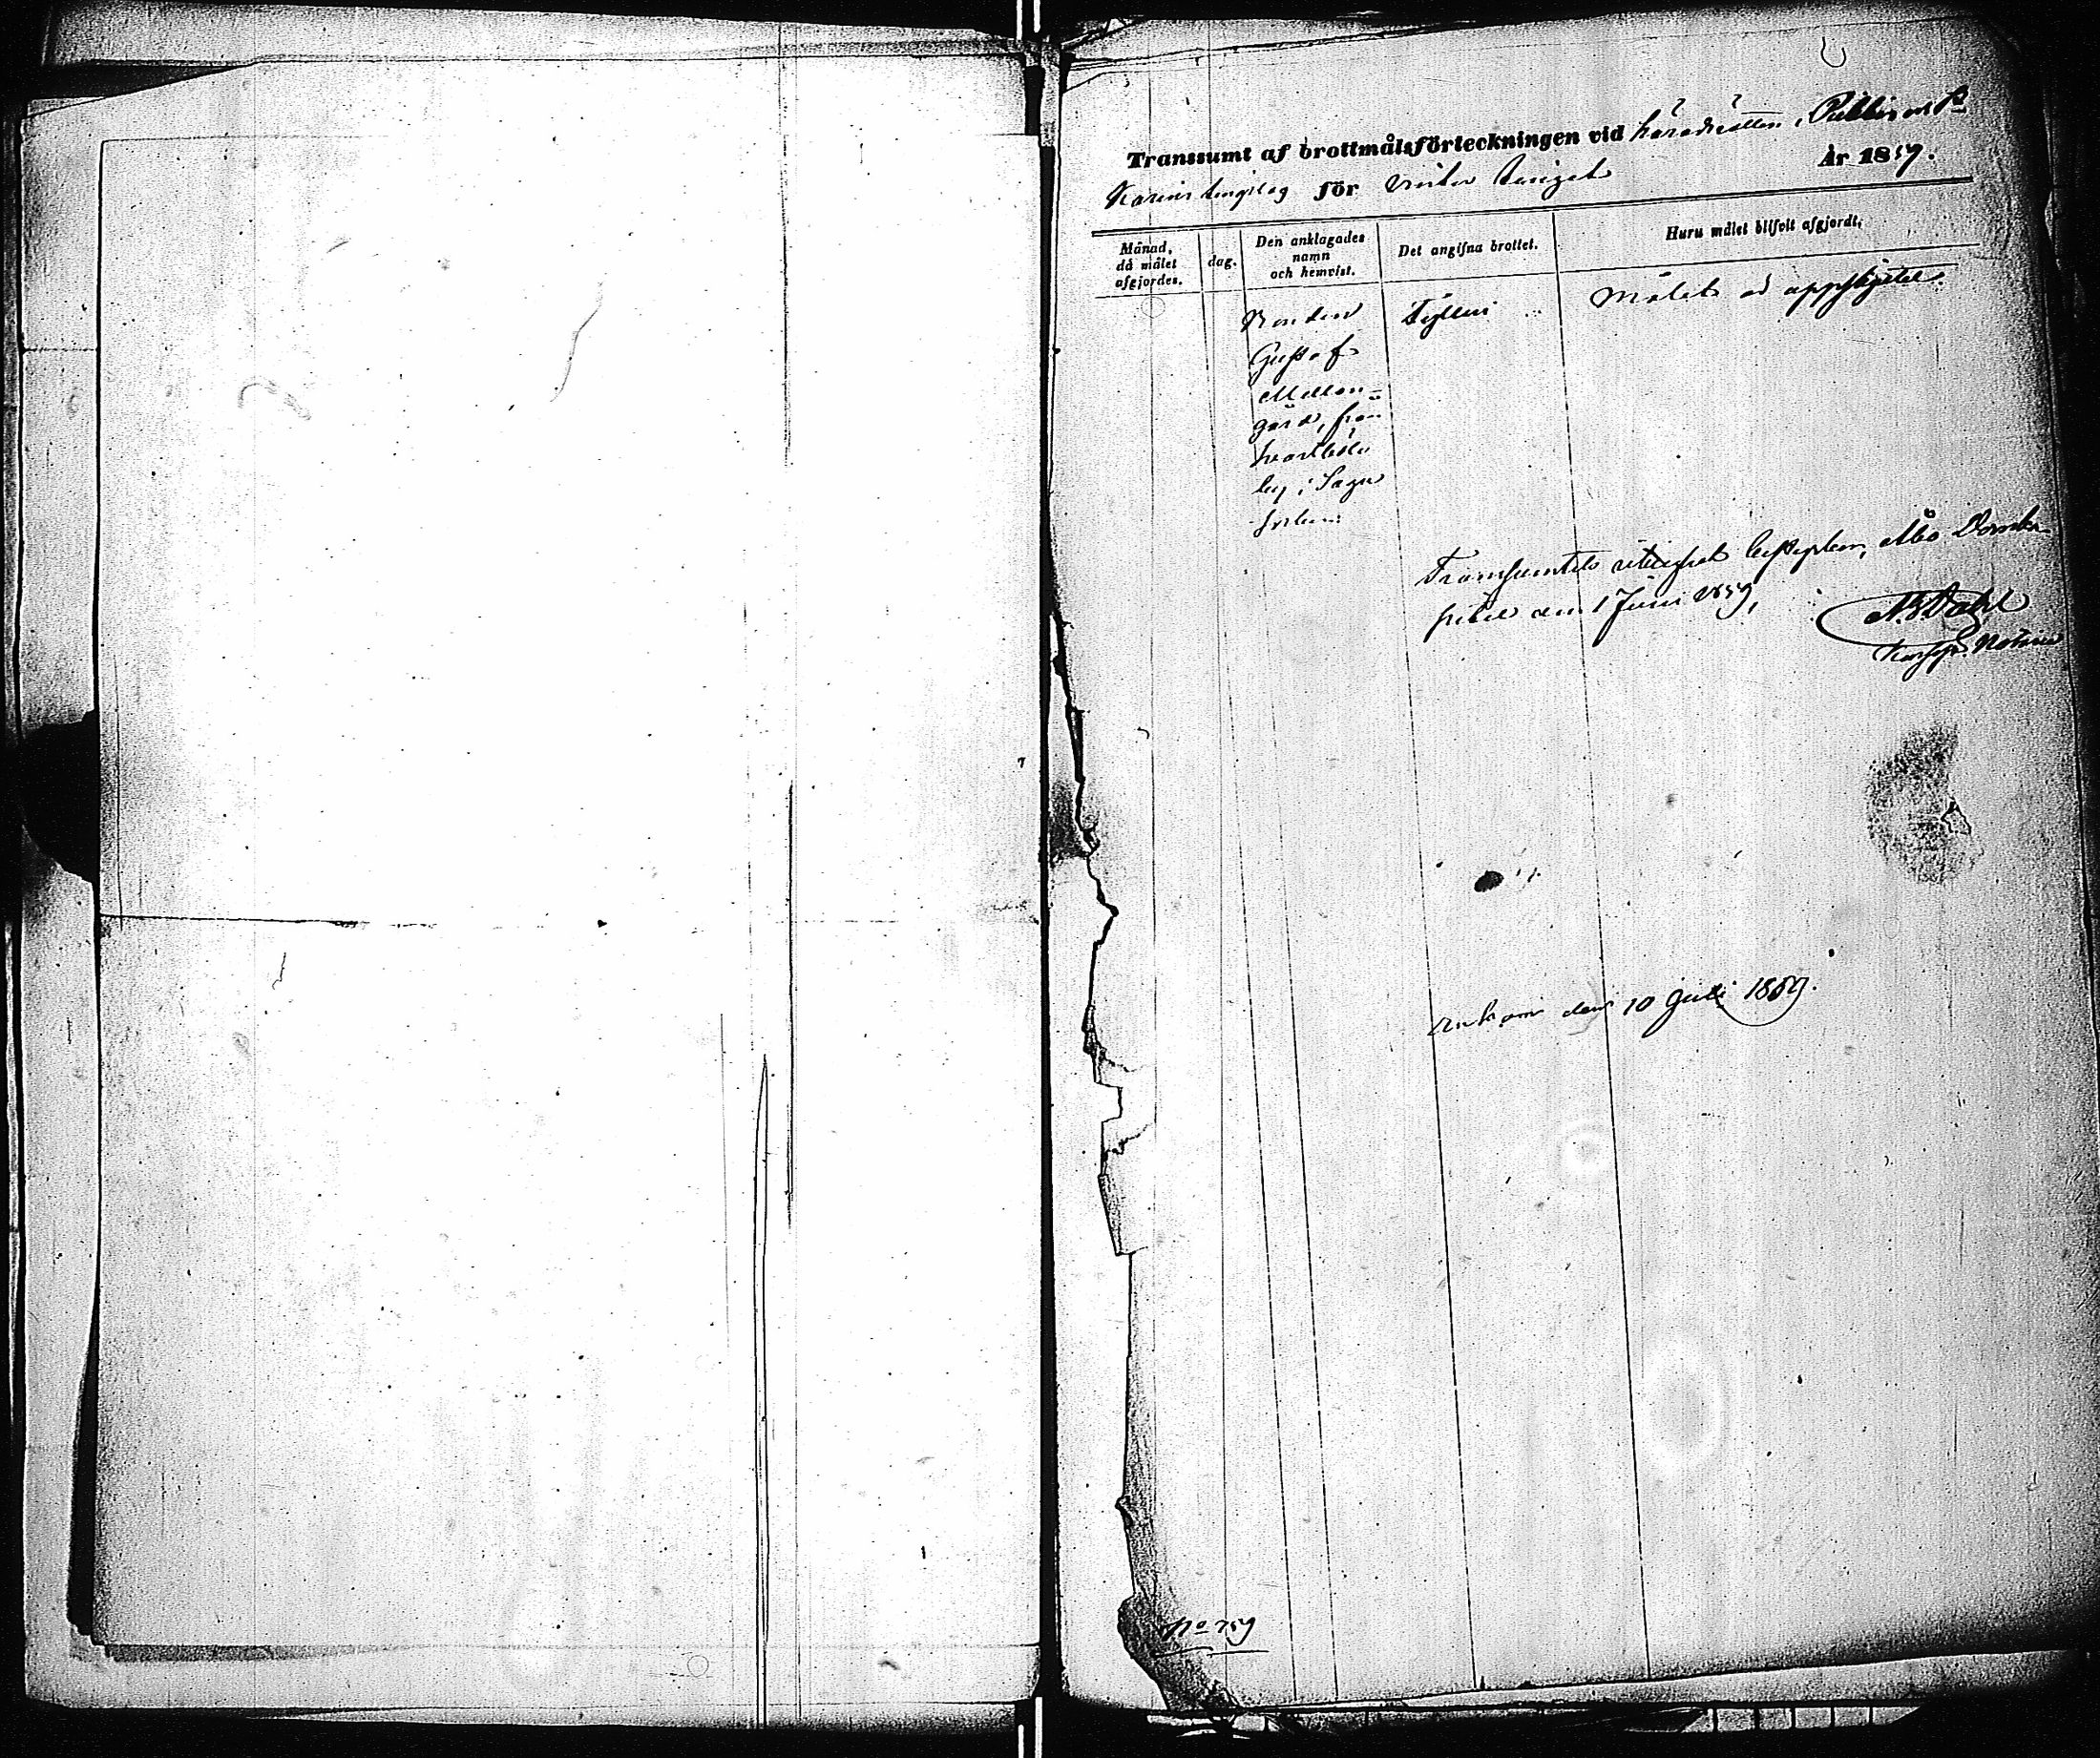 Transsumt af brottmålsförteckningen vid häradsrätten i Pikkis och St
Karins tingslag för vinter tinget År 1859.
Månad, då målet afgjordes.
dag.
Den anklagades namn och hemvist.
Det angifna brottet.
Huru målet blifvit afgjordt.
Bonden
Gustaf
Mellan-
gård, från
by i Sagu
socken.
Fylleri
Målet är uppskjutet.
Transsumtets riktighet Åbo Domka-
pitel den 1 Juni 1859,
Dahl
Notarie
Ankom den 10 Juli 1859.
No 759